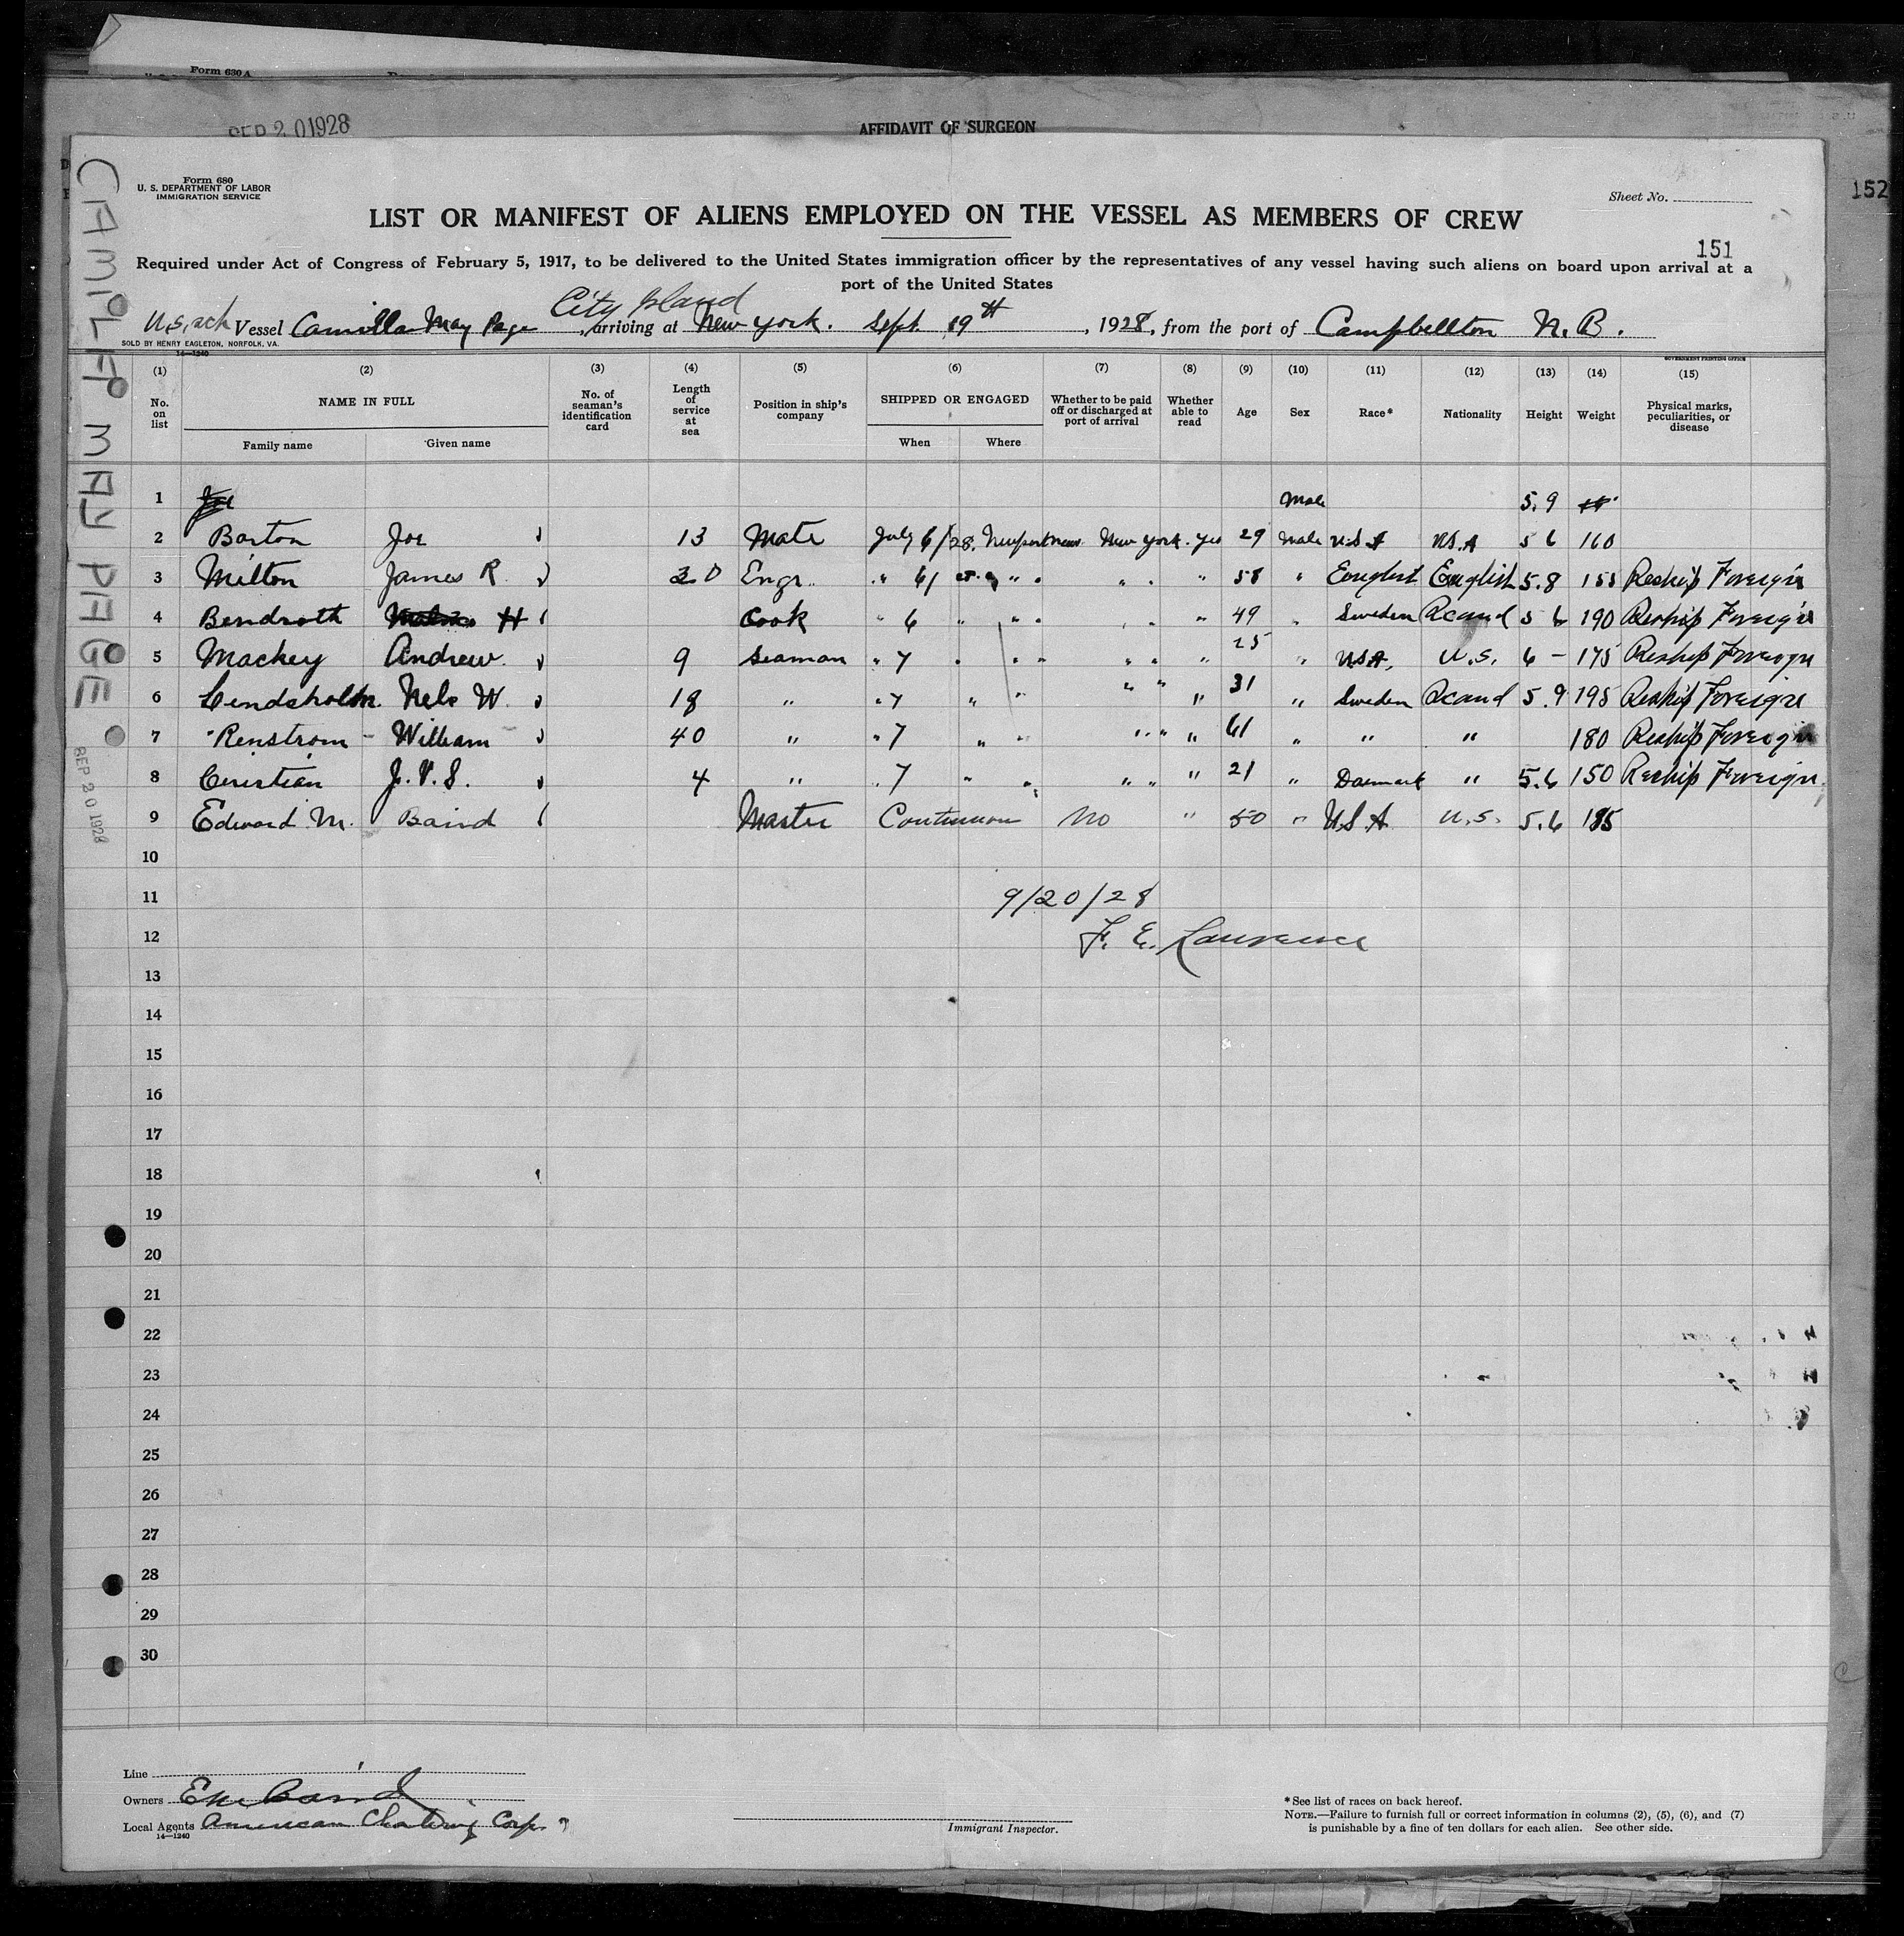 Form 630 A
SEP 2 0 1928
AFFIDAVIT OF SURGEON
Form 680
U. S. DEPARTMENT OF LABOR
IMMIGRATION SERVICE
Sheet No.
152
LIST OR MANIFEST OF ALIENS EMPLOYED ON THE VESSEL AS MEMBERS OF CREW
151
Required under Act of Congress of February 5, 1917, to be delivered to the United States immigration officer by the representatives of any vessel having such aliens on board upon arrival at a
port of the United States
City Island
U.S. sch Vessel Camilla May Page, arriving at New York. Sept. 19th, 1928, from the port of Campbellton N.B.
SOLD BY HENRY EAGLETON, NORFOLK, VA.
14—1240
GOVERNMENT PRINTING OFFICE
CAMILLA MAY PAGE
SEP 20 1928
(1) (2) (3) (4) (5) (6) (7) (8) (9) (10) (11) (12) (13) (14) (15)
No. on list NAME IN FULL No. of seaman's identification card Length of service at sea Position in ship's company SHIPPED OR ENGAGED Whether to be paid off or discharged at port of arrival Whether able to read Age Sex Race* Nationality Height Weight Physical marks, peculiarities, or disease
Family name Given name When Where
1 Joe Male 5.9
2 Barton Joe 13 Mate July 6/28. Newport news New York. yes 29 Male U.S A U.S.A 5 6 160
3 Milton James R 30 Engr. " 6/ " " " " " 58 " English English 5.8 155 Reship Foreign
4 Bendroth H Cook " 6 " " " " " " 49 " Sweden Scand 5 6 190 Reship Foreign
5 Mackey Andrew. 9 Seaman " 7 " " " " " " 25 " U.S.A, U.S. 6 – 175 Reship Foreign
6 Lendsholm. Nels W. 18 " " 7 " " " " " 31 " Sweden Scand 5.9 195 Reship Foreign
7 Renstrom William 40 " " 7 " " " " " 61 " " " 180 Reship Foreign
8 Cristian J.V.S. 4 " " 7 " " " " " 21 " Denmark " 5.6 150 Reship Foreign
9 Edward M. Baird Master Continuous No " 50 " U.S A U.S. 5.6 185
10
11 9/20/28
12 F. E. Lawrence
13
14
15
16
17
18
19
20
21
22
23
24
25
26
27
28
29
30
Line
Owners E M Baird
Local Agents American Chartering Corp.
14—1240
Immigrant Inspector.
* See list of races on back hereof.
NOTE.—Failure to furnish full or correct information in columns (2), (5), (6), and (7)
is punishable by a fine of ten dollars for each alien. See other side.